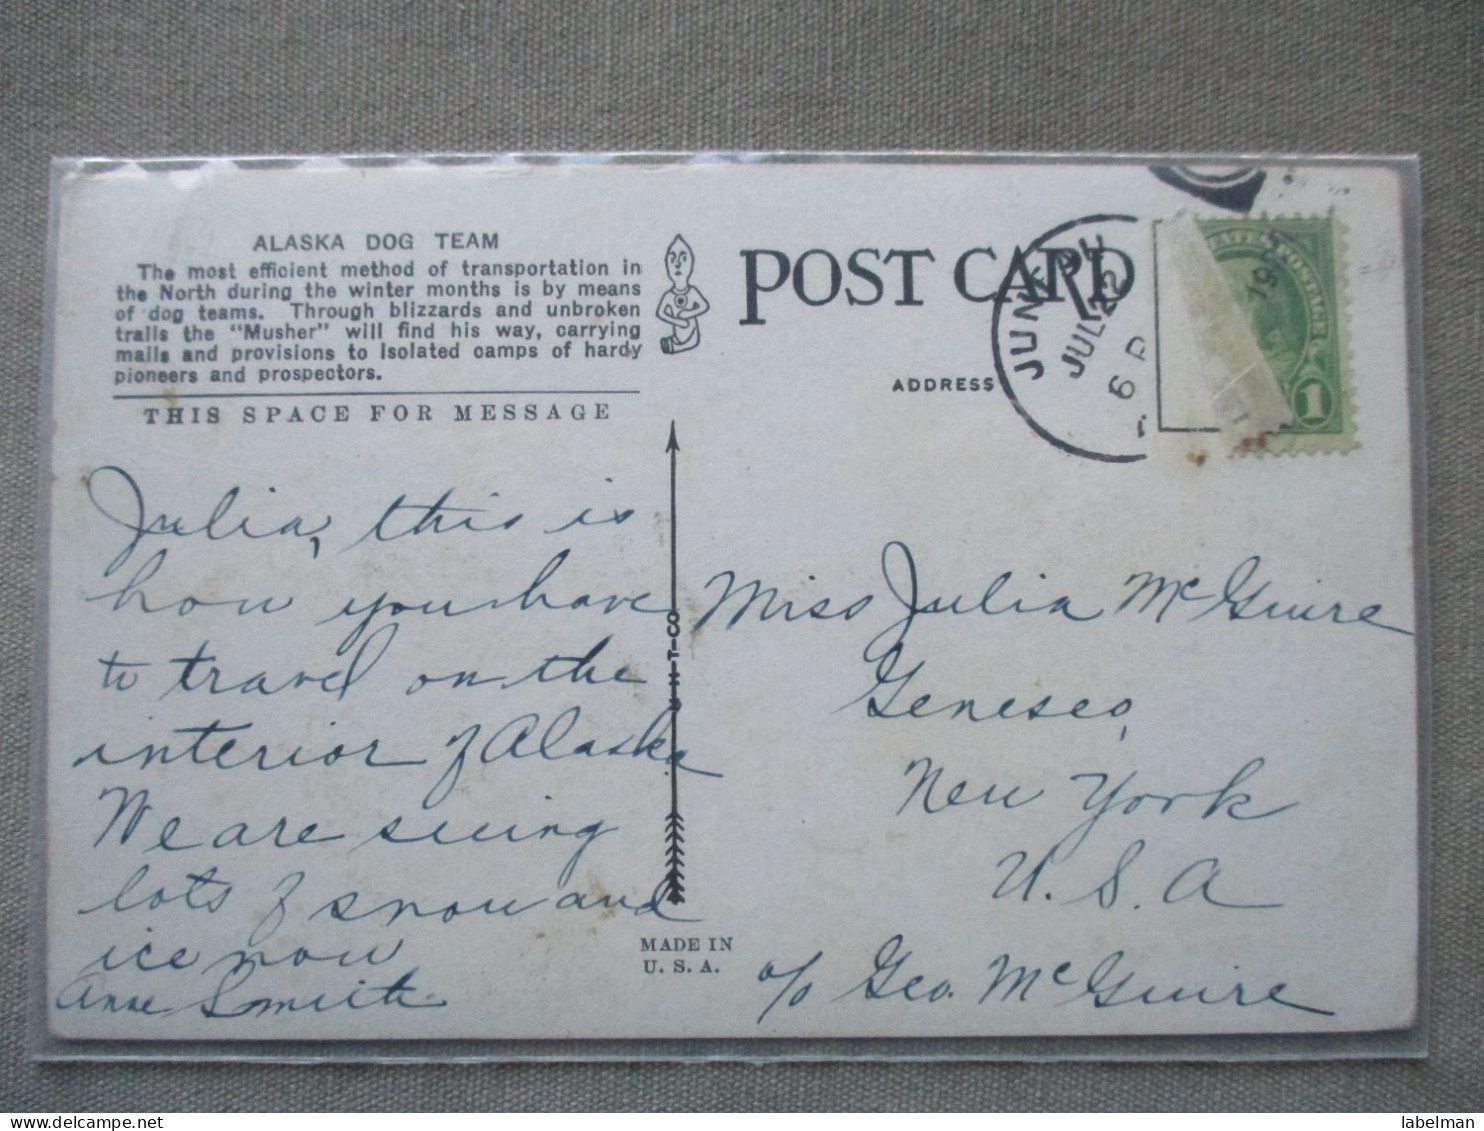 ALASKA DOG TEAM
The most efficient method of transportation in
the North during the winter months is by means
of dog teams. Through blizzards and unbroken
trails the "Musher" will find his way, carrying
mails and provisions to isolated camps of hardy
pioneers and prospectors.
THIS SPACE FOR MESSAGE
Julia, this is
how you have
to travel on the
interior of Alaska
We are seeing
lots of snow and
ice now
Anne Smith
MADE IN
U. S. A.
POST CARD
ADDRESS
JUNEAU
JUL 22
6 P
1
Miss Julia McGuire
Geneseo,
New York
U. S. A
c/o Geo. McGuire
labelman